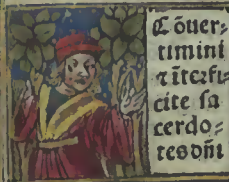 C õuer⸗
timini
⁊ ĩterfi⸗
cite sa
cerdo⸗
tes dñi